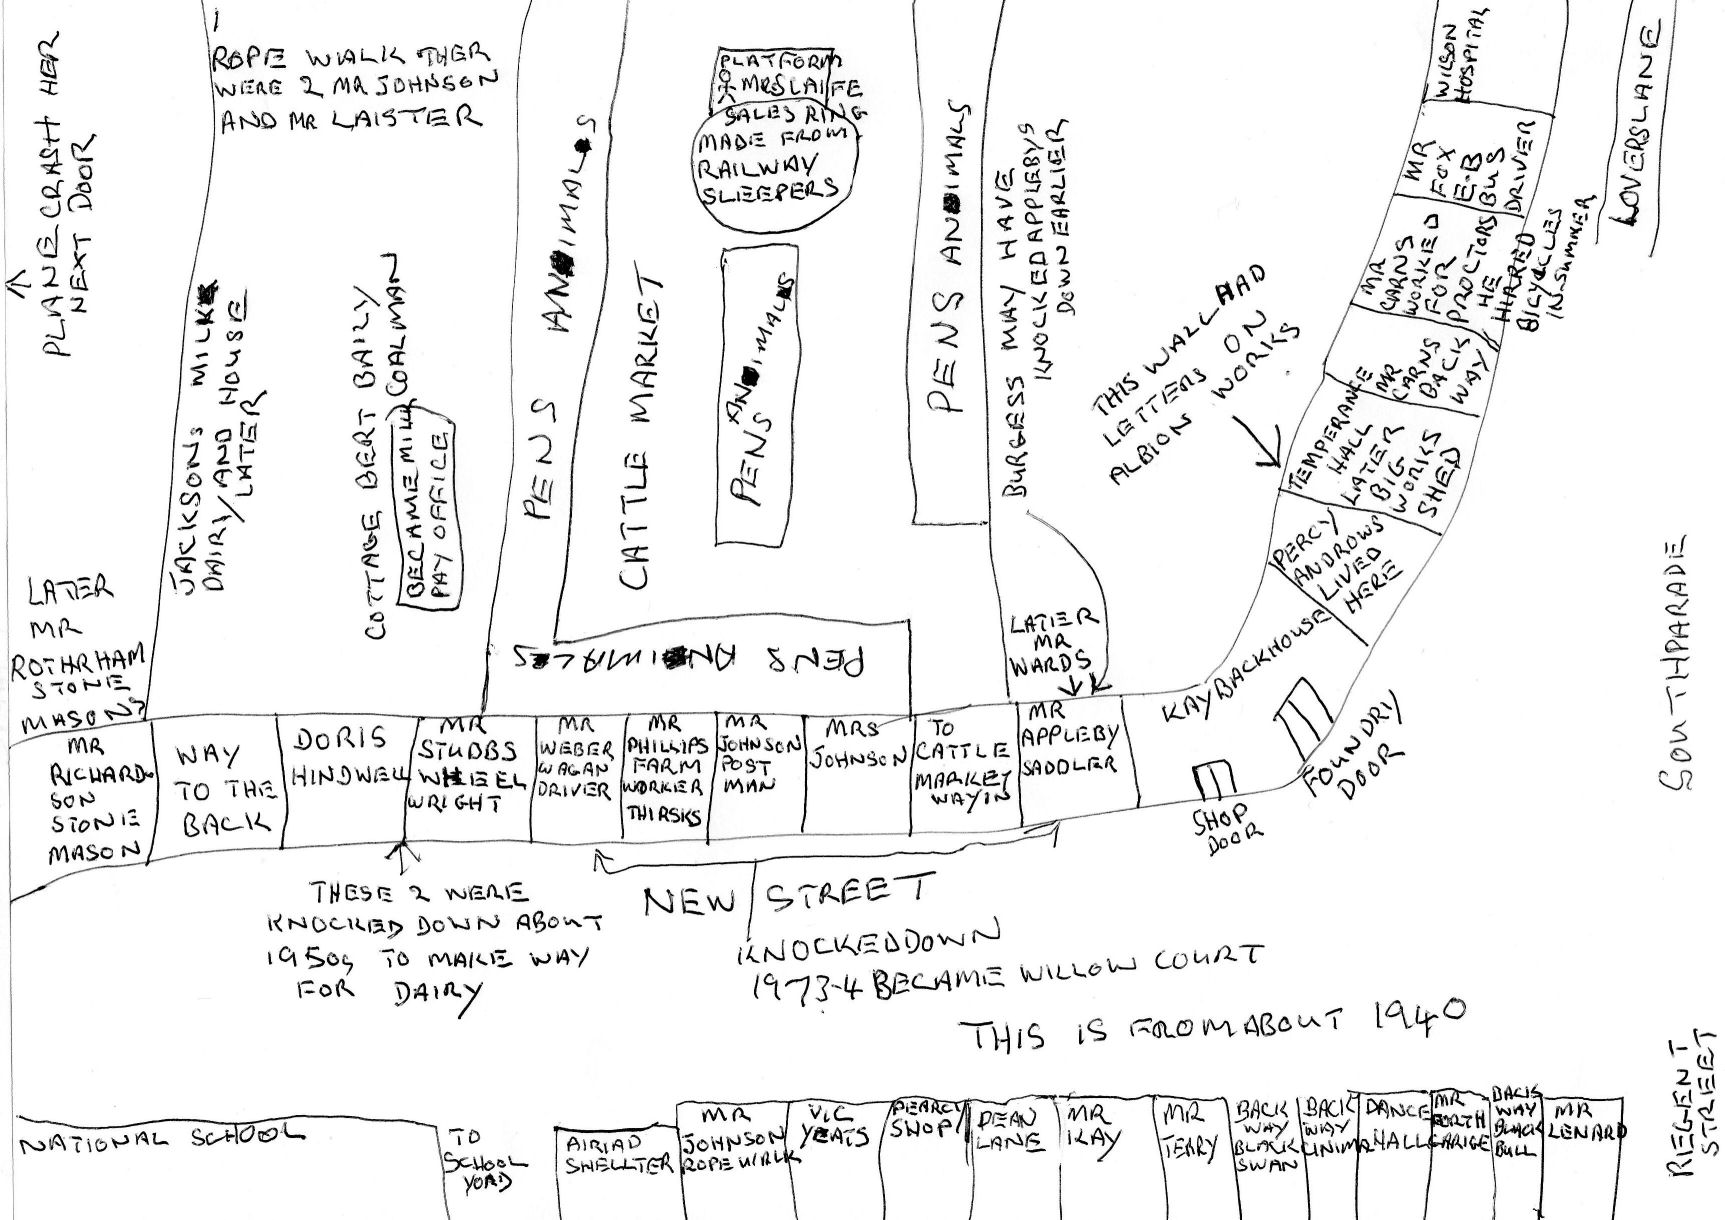 PLANE CRASH HER
NEXT DOOR
ROPE WALK THER
WERE 2 MR JOHNSON
AND MR LAISTER
JACKSONS MILK
DAIRY AND HOUSE
LATER
COTTAGE BERT BAILY
COALMAN
BECAME MILK
PAY OFFICE
PENS ANIMALS
CATTLE MARKET
PLATFORM
MRSLAIFE
SALES RING
MADE FROM
RAILWAY
SLEEPERS
PENS ANIMALS
PENS ANIMALS
BURGESS MAY HAVE
KNOCKED APPLEBYS
DOWN EARLIER
THIS WALL HAD
LETTERS ON
ALBION WORKS
WILSON
HOSPITAL
LOVERSLANE
MR
FOX
E.B
BUS
DRIVER
MR
CARNS
WORKED
FOR
PROCTORS
HE
HIARED
BICYCLES
IN SUMMER
MR
CARNS
BACK
WAY
TEMPERANCE
HALL
LATER
BIG
WORKS
SHED
PERCY
ANDROWS
LIVED
HERE
KAY BACKHOUSE
FOUNDRY
DOOR
SHOP
DOOR
SOUTHPARADIE
LATER
MR
ROTHRHAM
STONE
MASONS
PENS ANIMALES
LATER
MR
WARDS
MR
RICHARD
SON
STONE
MASON
WAY
TO THE
BACK
DORIS
HINDWELL
MR
STUBBS
WHEEL
WRIGHT
MR
WEBER
WAGAN
DRIVER
MR
PHILLIPS
FARM
WORKER
THIRSKS
MR
JOHNSON
POST
MAN
MRS
JOHNSON
TO
CATTLE
MARKET
WAY IN
MR
APPLEBY
SADDLER
THESE 2 WERE
KNOCKED DOWN ABOUT
1950s TO MAKE WAY
FOR DAIRY
NEW STREET
KNOCKED DOWN
1973-4 BECAME WILLOW COURT
THIS IS FROM ABOUT 1940
RIEGENT
STREET
NATIONAL SCHOOL
TO
SCHOOL
YORD
AIRIAD
SHELLTER
MR
JOHNSON
ROPE WALK
VIC
YEATS
PEARCY
SHOP
DEAN
LANE
MR
KAY
MR
TERRY
BACK
WAY
BLACK
SWAN
BACK
WAY
CINIMA
DANCE
HALL
MR
FORTH
GARIGE
BACK
WAY
BLACK
BULL
MR
LENARD